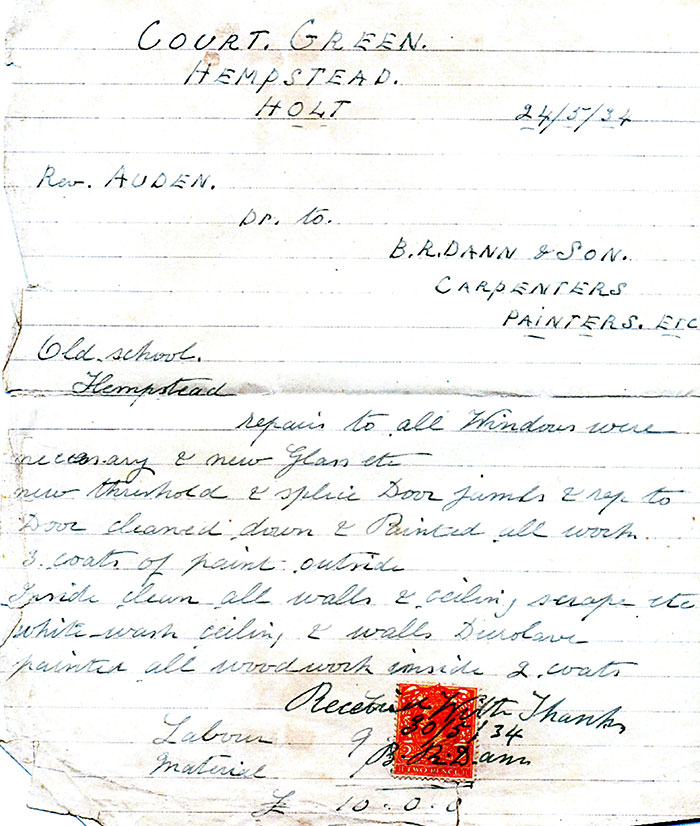 COURT. GREEN.
HEMPSTEAD.
HOLT
24/5/34
Rev. AUDEN.
Dr. to.
B.R. DANN & SON.
CARPENTERS
PAINTERS. ETC
Old school.
Hempstead
repairs to all Windows were
neccesary & new Glass etc
new threshold & splice Door jambs & rep to
Door cleaned down & Painted all work.
3 coats of paint outside
Inside clean all walls & ceiling scrape etc
white-wash ceiling & walls Durolave
painted all woodwork inside 2 coats
Received With Thanks
30/5/34
Labour 9
B R Dann
Material
TWO PENCE
£ 10.0.0